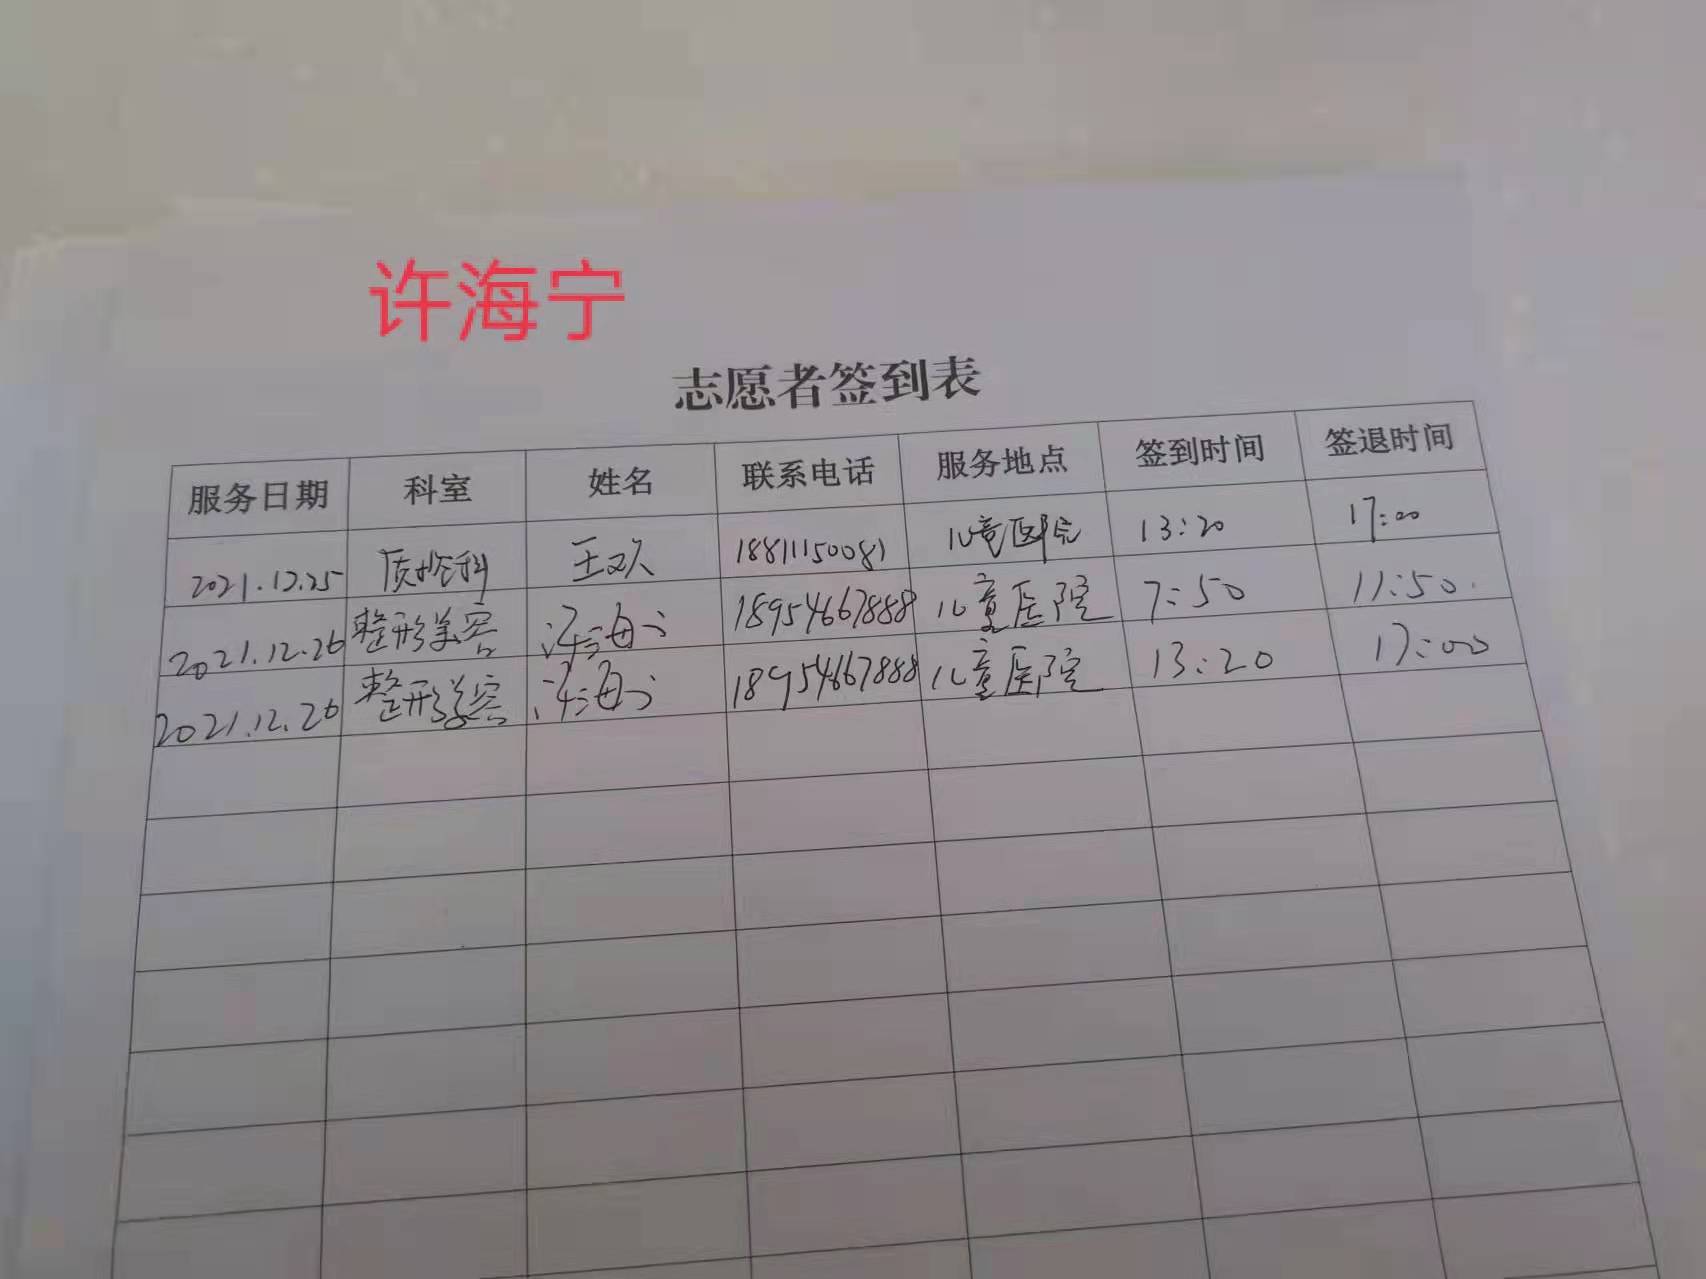 许海宁
志愿者签到表
服务日期 科室 姓名 联系电话 服务地点 签到时间 签退时间
2021.12.25 质控科 18811150081 儿童医院 13:20 17:00
2021.12.26 整形美容 18954667888 儿童医院 7:50 11:50.
2021.12.26 整形美容 18954667888 儿童医院 13:20 17:00